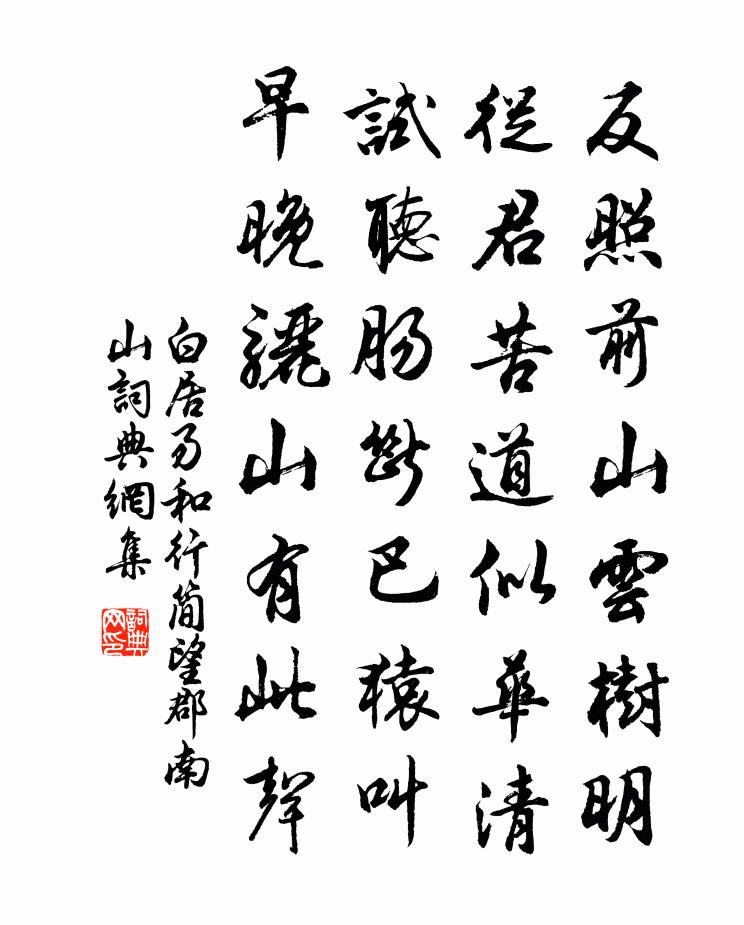 反照前山雲樹明
從君苦道似華清
試聽肠斷巴猿叫
早晚驪山有此聲
白居易和行简望郡南
山詞典網集
詞典
网印